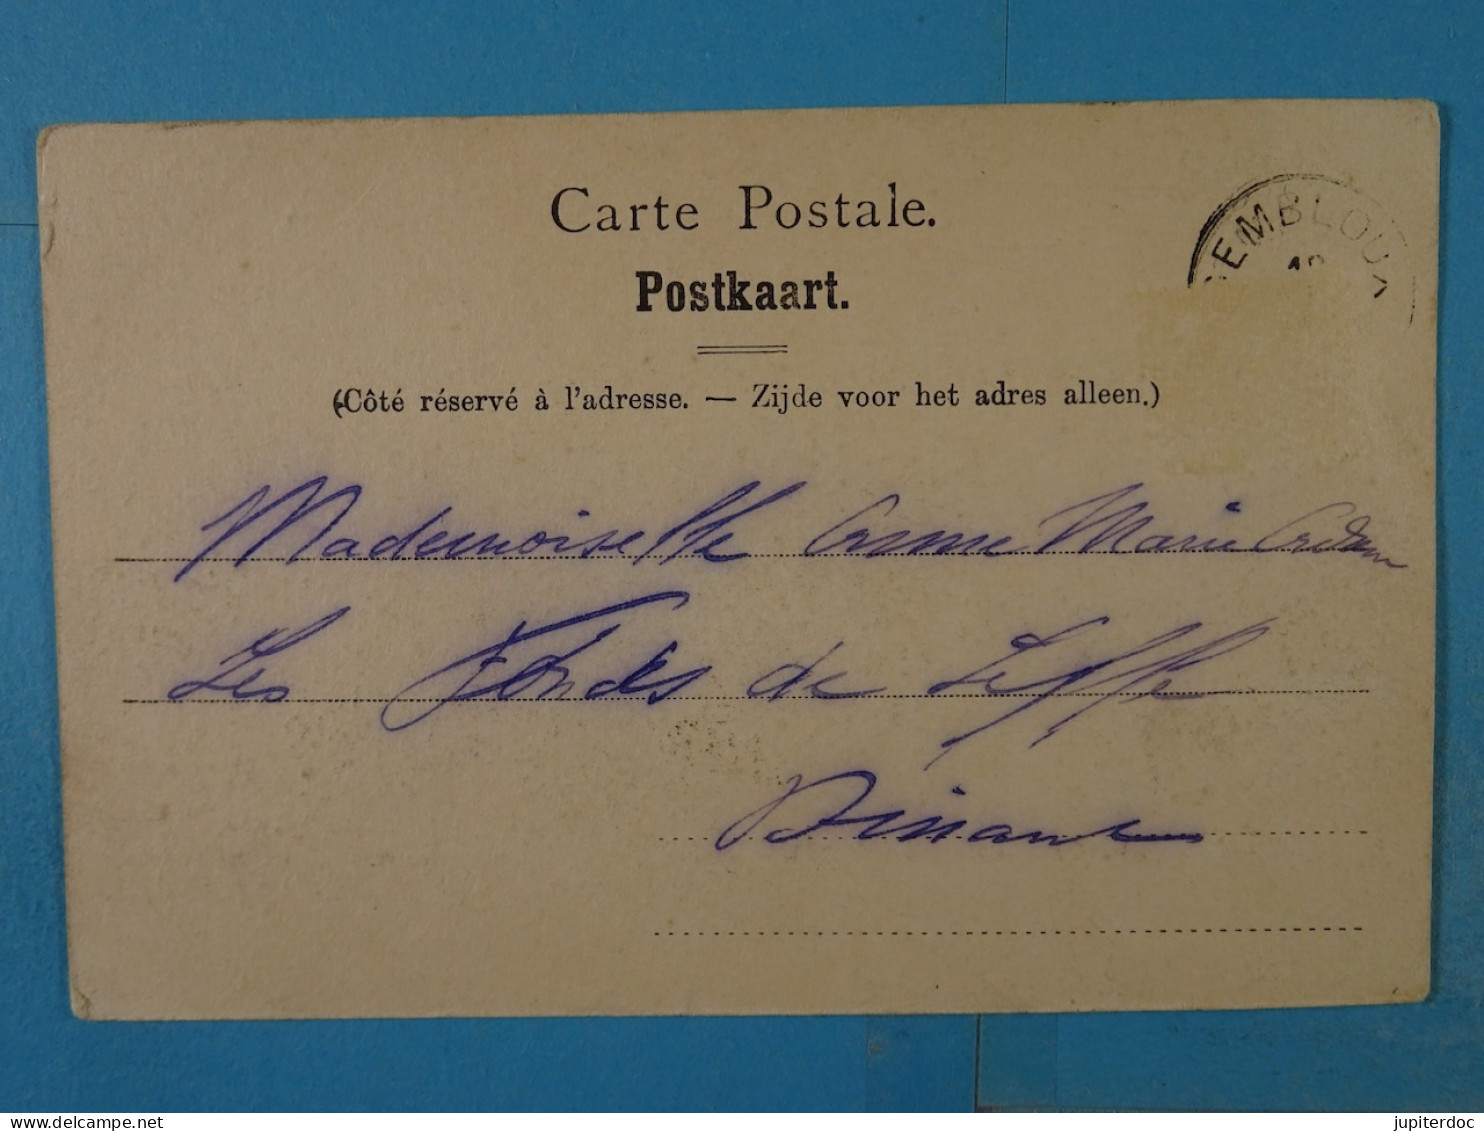 Carte Postale.
Postkaart.
(Côté réservé à l'adresse. — Zijde voor het adres alleen.)
EMBLOUX
Mademoiselle Anne Marie
Les Fonds de Leffe
Dinant
jupiterdoc